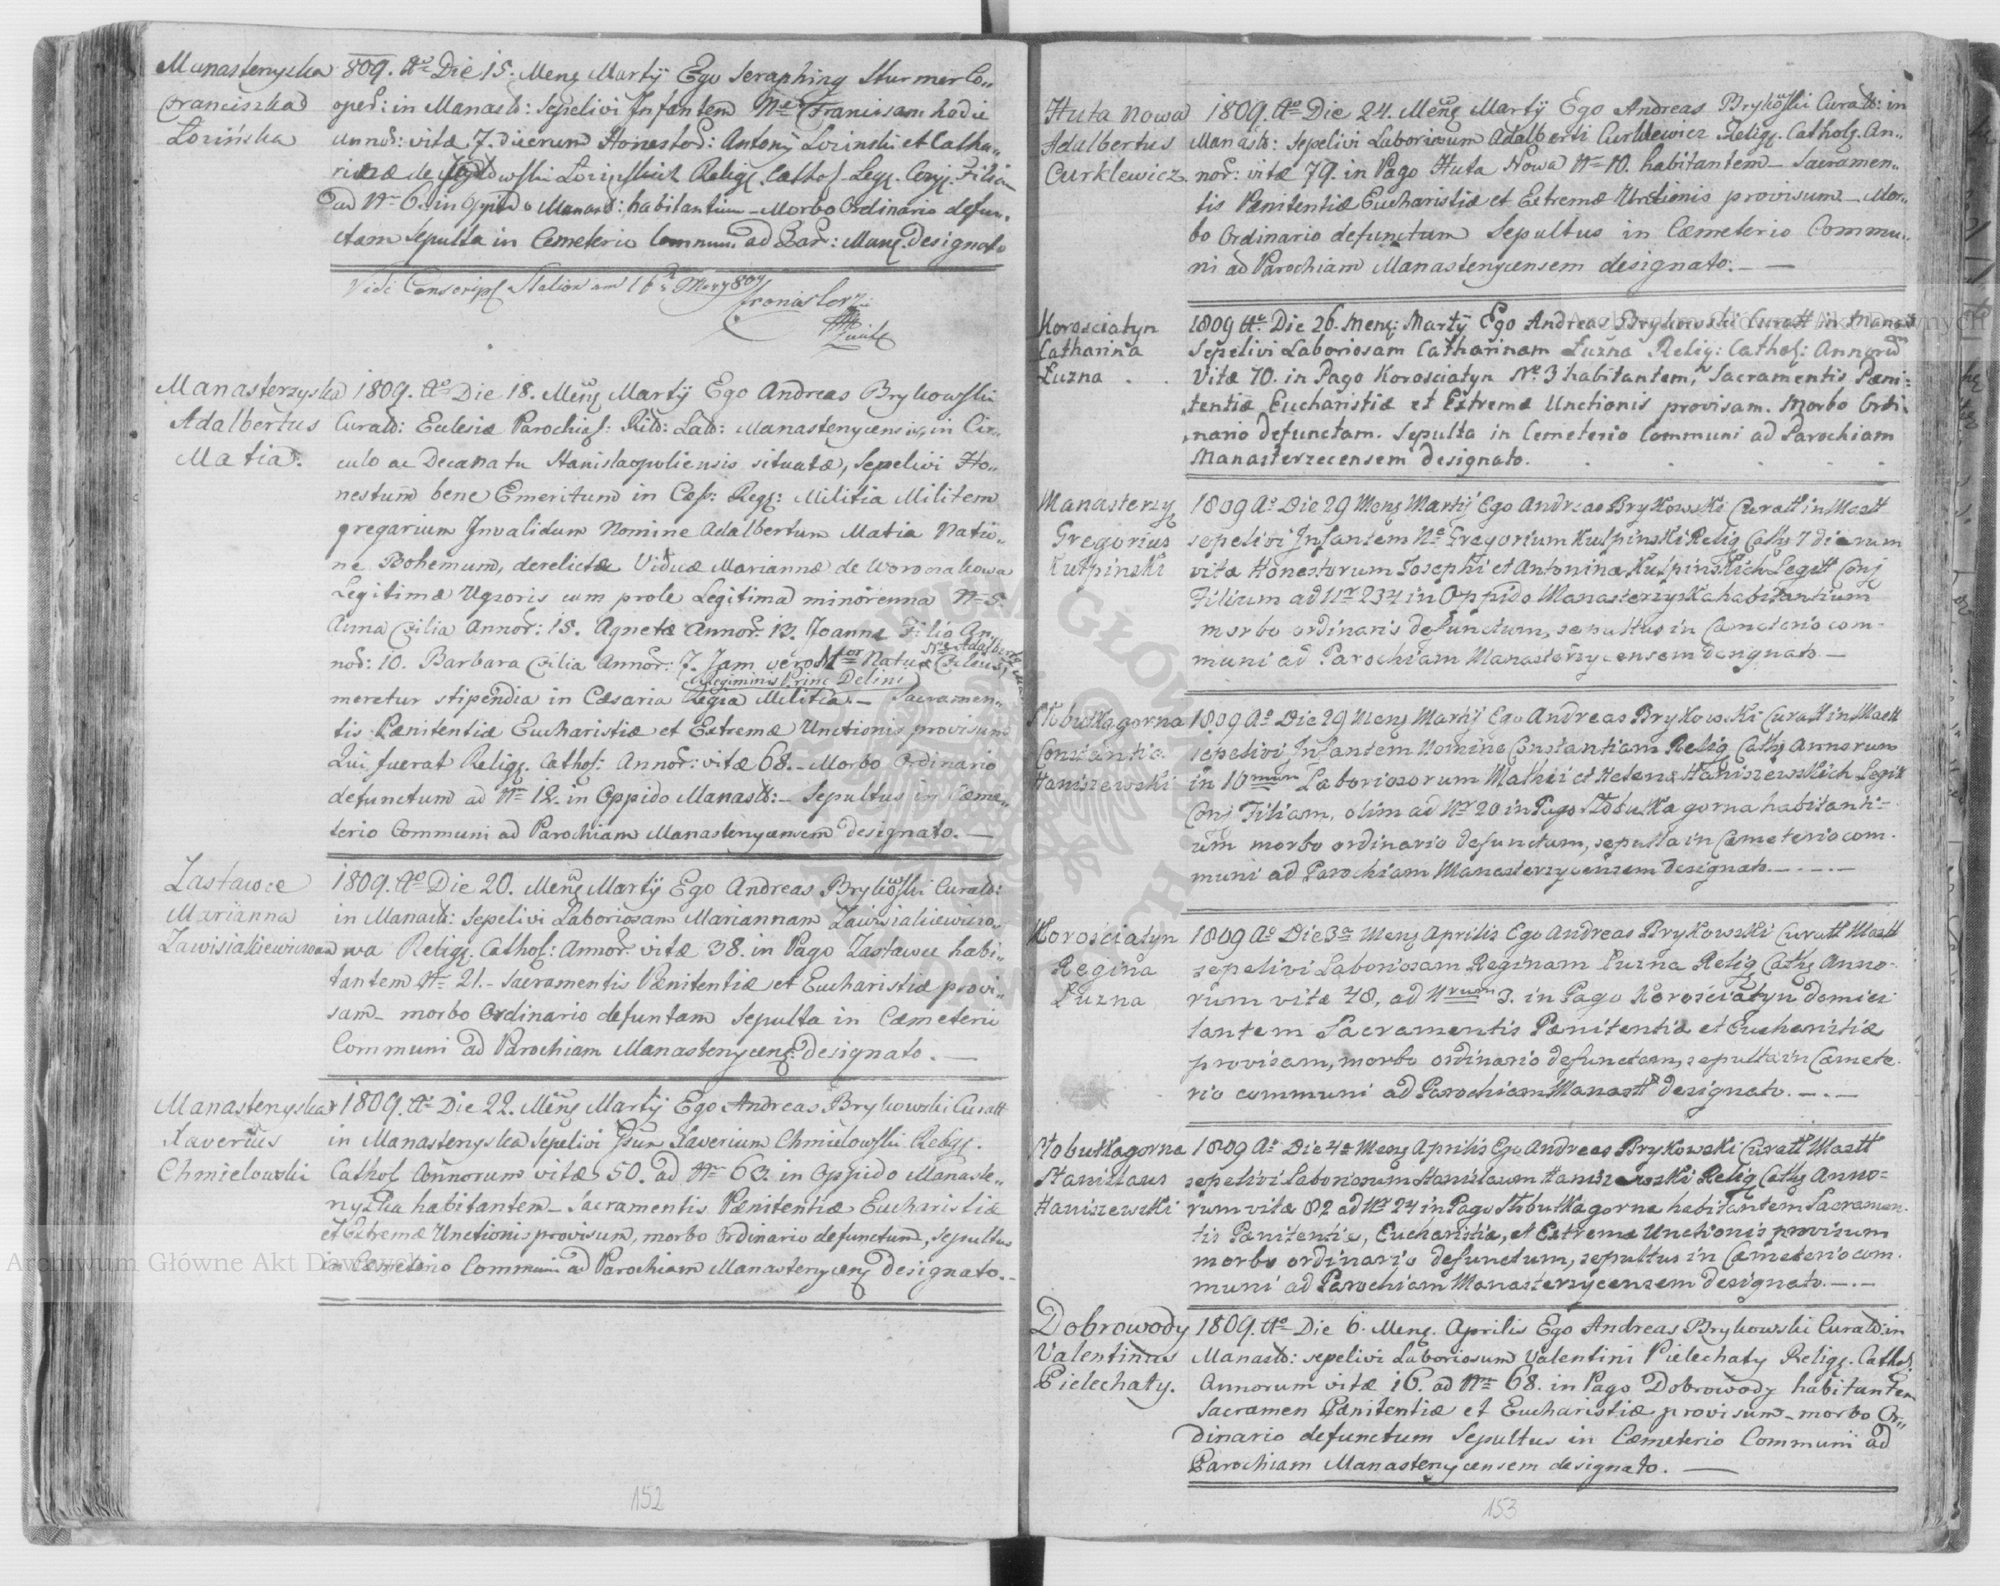 Manasterzyska
Franciszka
Łozińska
1809. Ao Die 15. Mens Martÿ Ego Seraphinq Sturmer Co„
oper: in Manast: Sepelivi Infantem Nne Franciscam hodie
Annor: vitæ 7. dierum Honestor: Antonÿ Lozinski et Catha„
rinæ de Łozinskich Religs. Cathol. Legs. Conjs. Filiam
ad Nr 6. in Oppido Manast: habitantium – Morbo Ordinario defun„
ctam Sepulta in Cemeterio Communi ad Par: Mans. designato
Vidi Conscrips Station am 16
Manasterzyska
Adalbertus
Matia.
1809. Ao Die 18. Mens Martÿ Ego Andreas Brykowski
Curato: Eclesiæ Parochials: Rit: Lat: Manasterzycensis, in Cir„
culo ac Decanatu Stanislaopoliensis situatæ, Sepelivi Ho„
nestum bene Emeritum in Cæs: Regs: Militia Militem
gregarium Invalidum Nomine Adalbertum Matia Natio„
ne Bohemum, derelictæ Viduæ Mariannæ de Woronakowa
Legitimæ Uxoris cum prole Legitima minorenna No 5.
Anna Filia Annor: 15. Agneta Annor. 13. Joanna Filia An„
nor: 10. Barbara Filia Annor: 7. Jam vero Natus Filius,
Nne Adalbertus
Regiminis Princ Delini
meretur stipendia in Cæsaria Regia Militia. – Sacramen„
tis Pænitentiæ Eucharistiæ et Extremæ Unctionis provisum
Qui fuerat Religs. Cathol: Annor: vitæ 68. – Morbo Ordinario
defunctum ad Nr 12. in Oppido Manast: – Sepultus in Cæme„
terio Communi ad Parochiam Manasterzycensem designato. —
Zastawce
Marianna
Zawisiakiewiczowa
1809. Ao Die 20. Mens Martÿ Ego Andreas Brykowski Curato:
in Manast: Sepelivi Laboriosam Mariannam Zawisiakiewiczo„
wa Religs. Cathol: Annor: vitæ 38. in Pago Zastawce habi„
tantem Nr 21. – Sacramentis Pænitentiæ et Eucharistiæ provi„
sam – morbo Ordinario defuntam Sepulta in Cæmeterii
Communi ad Parochiam Manasterzycens: designato. —
Manasterzyska
Xaverius
Chmielowski
1809. Ao Die 22. Mens Martÿ Ego Andreas Brykowski Curatt
in Manasterzyska Sepelivi Xaverium Chmielowski Religs.
Cathol Annorum vitæ 50. ad Nr 63. in Oppido Manaste„
rzyska habitantem – Sacramentis Pænitentiæ Eucharistiæ
et Extremæ Unctionis provisum, morbo Ordinario defunctum, Sepultus
in Cemeterio Communi ad Parochiam Manasterzycens designato. –
152
Huta Nowa
Adalbertus
Curklewicz.
1809. Ao Die 24. Mens Martÿ Ego Andreas Brykowski Curato: in
Manast: Sepelivi Laboriosum Adalberti Curklewicz Religs. Catholg. An„
nor: vitæ 79. in Pago Huta Nowa Nr 10. habitantem – Sacramen„
tis Pænitentiæ Eucharistiæ et Extremæ Unctionis provisum – Mor„
bo Ordinario defunctum Sepultus in Cæmeterio Commu„
ni ad Parochiam Manasterzycensem designato. — —
Korosciatyn
Catharina
Łuzna . .
1809 Ao. Die 26. Mens: Martÿ Ego Andreas Brykowski Curatt in Manast
Sepelivi Laboriosam Catharinam Łuzna Relig: Cathol: Annorum
Vitæ 70. in Pago Korosciatyn No 3 habitantem, Sacramentis Pæni:
tentiæ Eucharistiæ et Extremæ Unctionis provisam. Morbo Ordi:
nario defunctam. Sepulta in Cemeterio Communi ad Parochiam
Manasterzecensem designato. . . . .
Manasterzys
Gregorius
Kulpinski
1809 Ao Die 29 Mens Martÿ Ego Andreas Brykowski Curatt in Mastt
sepelivi Infantem Ne Gregorium Kulpinski Relig Caths 7 dierum
vitæ Honestorum Josephi et Antoninæ Kulpinskich Legitt Conj
Filium ad Nr 234 in Oppido Manasterzyska habitantium
morbo ordinaris defunctum, sepultus in Cæmeterio com-
muni ad Parochiam Manasterzycensem designato —
Słobutka gorna
Constantia
Haniszewski
1809 Ao Die 29 Mens Martÿ Ego Andreas Brykowski Curatt in Mastt
sepelivi Infantem Nomine Constantiam Relig Caths Annorum
in 10 mum Laboriosorum Mathei et Helenæ Haniszewskich Legitt
Conj Filiam, olim ad Nr 20 in Pago Słobutka gorna habitanti-
um morbo ordinario defunctum, sepulta in Cæmeterio com-
muni ad Parochiam Manasterzycensem designato. — . — . —
Korosciatyn
Regina
Łuzna
1809 Ao Die 3a Mens Aprilis Ego Andreas Brykowski Curatt Mastt
sepelivi Laboriosam Reginam Łuzna Relig Caths Anno-
rum vitæ 48, ad Nrum 3. in Pago Korosciatyn domici
lantem Sacramentis Pænitentiæ et Eucharistiæ
provisam, morbo ordinario defunctam, sepulta in Cæmete-
rio communi ad Parochiam Manastt designato. — . —
Słobutka gorna
Stanislaus
Haniszewski
1809 Ao Die 4a Mens Aprilis Ego Andreas Brykowski Curatt Mastt
sepelivi Laboriosum Stanislaum Haniszewski Relig Caths Anno=
rum vitæ 82 ad Nr 24 in Pago Słobutka gorna habitantem Sacramen-
tis Pænitentiæ, Eucharistiæ, et Extremæ Unctionis provisum
morbo ordinario defunctum, sepultus in Cæmeterio com-
muni ad Parochiam Manasterzycensem designato. — . —
Dobrowody
Valentinus
Pielechaty.
1809. Ao Die 6. Mens. Aprilis Ego Andreas Brykowski Curato: in
Manast: sepelivi Laboriosum Valentini Pielechaty Religs. Cathol.
Annorum vitæ 16. ad Nr 68. in Pago Dobrowody habitantem
Sacramen Pænitentiæ et Eucharistiæ provisum – morbo Or„
dinario defunctum Sepultus in Cæmeterio Communi ad
Parochiam Manasterzycensem designato. —
153
Archiwum Główne Akt Dawnych
Archiwum Główne Akt Dawnych